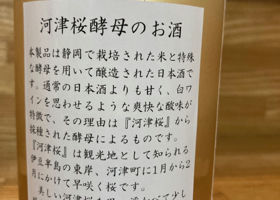 河津桜酵母のお酒
本製品は静岡で栽培された米と特殊
な酵母を用いて醸造された日本酒で
す。通常の日本酒よりも甘く、白ワ
インを思わせるような爽快な酸味が
特徴で、その理由は『河津桜』から
採種された酵母によるものです。
『河津桜』は観光地として知られる
伊豆半島の東岸、河津町に1月から2
月にかけて早咲く桜です。
美しい河津桜を